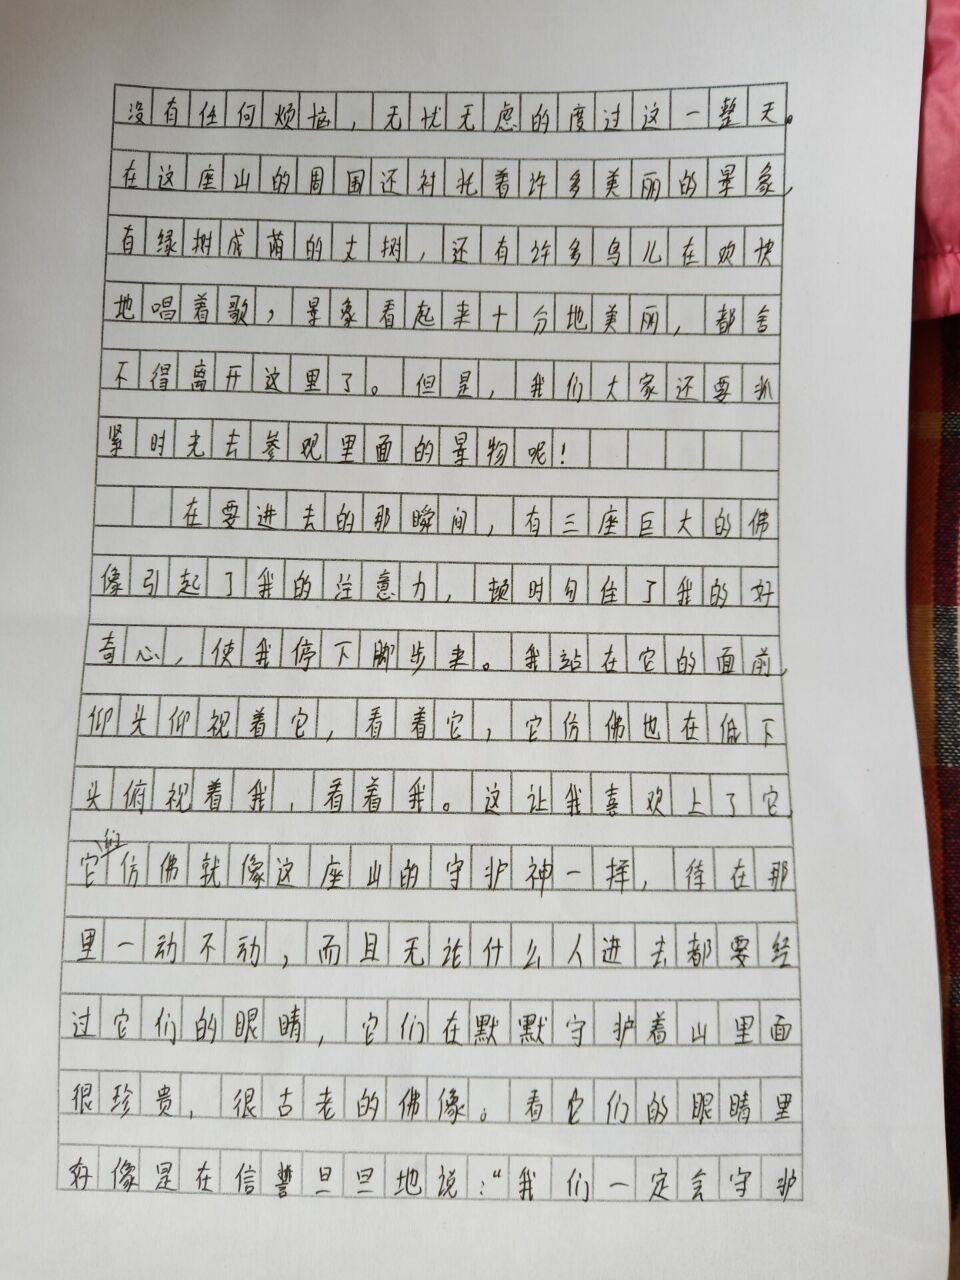 没有任何烦恼，无忧无虑的度过这一整天。
在这座山的周围还衬托着许多美丽的景象，
有绿树成荫的大树，还有许多鸟儿在欢快
地唱着歌，景象看起来十分地美丽，都舍
不得离开这里了。但是，我们大家还要抓
紧时光去参观里面的景物呢！
在要进去的那瞬间，有三座巨大的佛
像引起了我的注意力，顿时勾住了我的好
奇心，使我停下脚步来。我站在它的面前，
仰头仰视着它，看着它，它仿佛也在低下
头俯视着我，看着我。这让我喜欢上了它，
它们仿佛就像这座山的守护神一样，待在那
里一动不动，而且无论什么人进去都要经
过它们的眼睛，它们在默默守护着山里面
很珍贵，很古老的佛像。看它们的眼睛里
好像是在信誓旦旦地说：“我们一定会守护